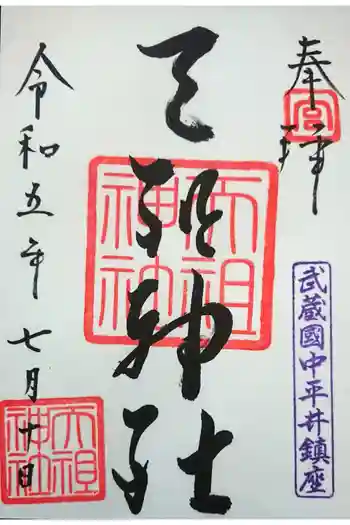 奉拝
武蔵國中平井鎮座
天祖神社
天祖
神社
令和五年七月廿日
天祖
神社